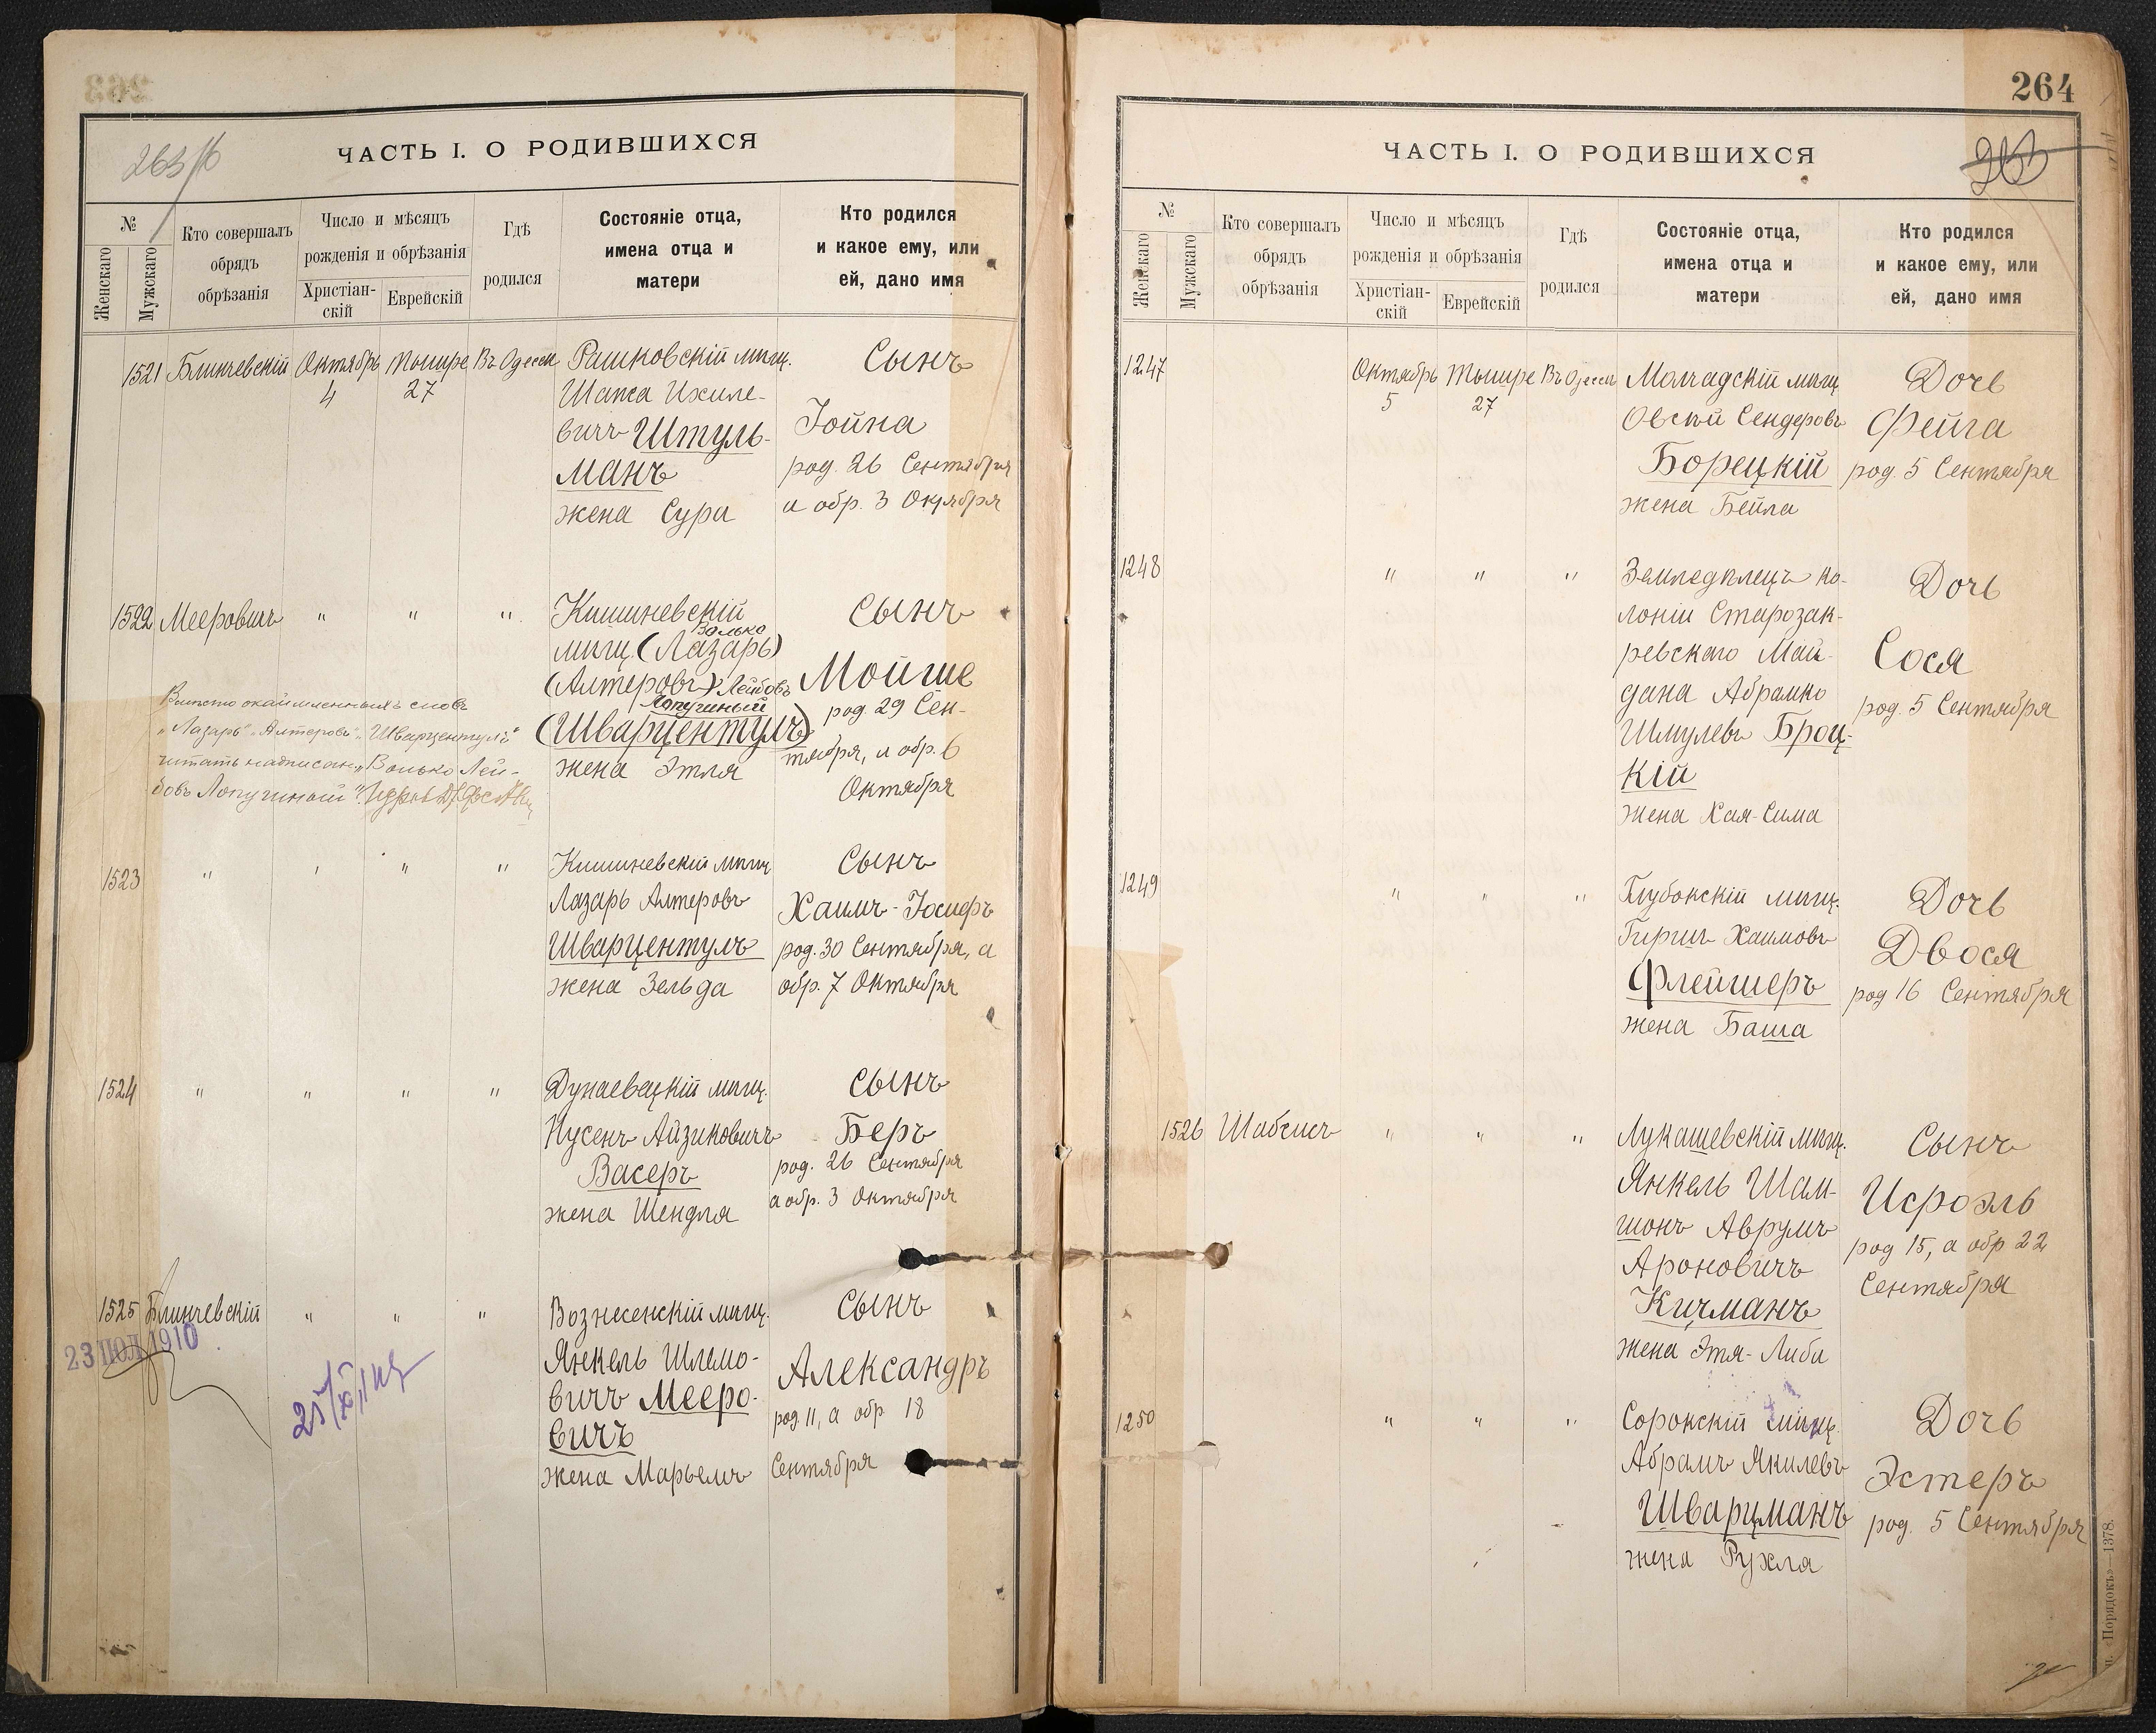 263/б
ЧАСТЬ I. О РОДИВШИХСЯ
№
Женскаго
Мужскаго
Кто совершалъ
обрядъ
обрѣзанія
Число и мѣсяцъ
рожденія и обрѣзанія
Христіан-
скій
Еврейскій
Гдѣ
родился
Состояніе отца,
имена отца и
матери
Кто родился
и какое ему, или
ей, дано имя
1521 Блинчевскій Октябрь Тышре Въ Одессѣ Рашковскій мѣщ. Сынъ
4 27 Шапса Ихиле-
вичъ Штуль- Іойна
манъ род. 26 Сентября
жена Сура и обр. 3 Октября
1522 Мееровичъ " " " Кишиневскій Сынъ
Волько
мѣщ. (Лазарь)
(Алтеровъ) Лейбовъ Мойше
Лопучиный
(Шварцентулъ) род. 29 Сен-
жена Этля тября, и обр. 6
Октября
Вмѣсто окаймленныхъ словъ
„Лазарь" „Алтеровъ" „Шварцентулъ"
читать надписан. „Волько Лей-
бовъ Лопучиный".
1523 " " " " Кишиневскій мѣщ. Сынъ
Лазарь Алтеровъ Хаимъ-Іосифъ
Шварцентулъ род. 30 Сентября, а
жена Зельда обр. 7 Октября
1524 " " " " Дунаевецкій мѣщ. Сынъ
Нусенъ Айзиковичъ Беръ
Васеръ род. 26 Сентября
жена Шендля а обр. 3 Октября
1525 Блинчевскій " " " Вознесенскій мѣщ. Сынъ
23 ІЮЛ 1910
Янкель Шлемо- Александръ
вичъ Мееро- род. 11, а обр. 18
вичъ
жена Марьемъ Сентября
264
ЧАСТЬ I. О РОДИВШИХСЯ
№
Женскаго
Мужскаго
Кто совершалъ
обрядъ
обрѣзанія
Число и мѣсяцъ
рожденія и обрѣзанія
Христіан-
скій
Еврейскій
Гдѣ
родился
Состояніе отца,
имена отца и
матери
Кто родился
и какое ему, или
ей, дано имя
1247 Октябрь Тышре Въ Одессѣ Молчадскій мѣщ. Дочь
5 27 Овсѣй Сендеровъ Фейга
Борецкій род. 5 Сентября
жена Бейла
1248 " " " Земледѣлецъ ко- Дочь
лоніи Старозак-
ревскаго Май- Сося
дана Абрамко род. 5 Сентября
ШмулевъБроц-
кій
жена Хая-Сима
1249 " " " Глубокскій мѣщ. Дочь
Гиршъ Хаимовъ Двося
Флейшеръ род 16 Сентября
жена Баша
1526 Шабсисъ " " " Лукашевскій мѣщ. Сынъ
Янкель Шам- Исроэль
шонъ Аврумъ род 15, а обр 22
Ароновичъ Сентября
Кицманъ
жена Этя-Либа
1250 " " " Сорокскій мѣщ. Дочь
Абрамъ Якилевъ Эстеръ
Шварцманъ род. 5 Сентября
жена Рухля
«Порядокъ»—1378.